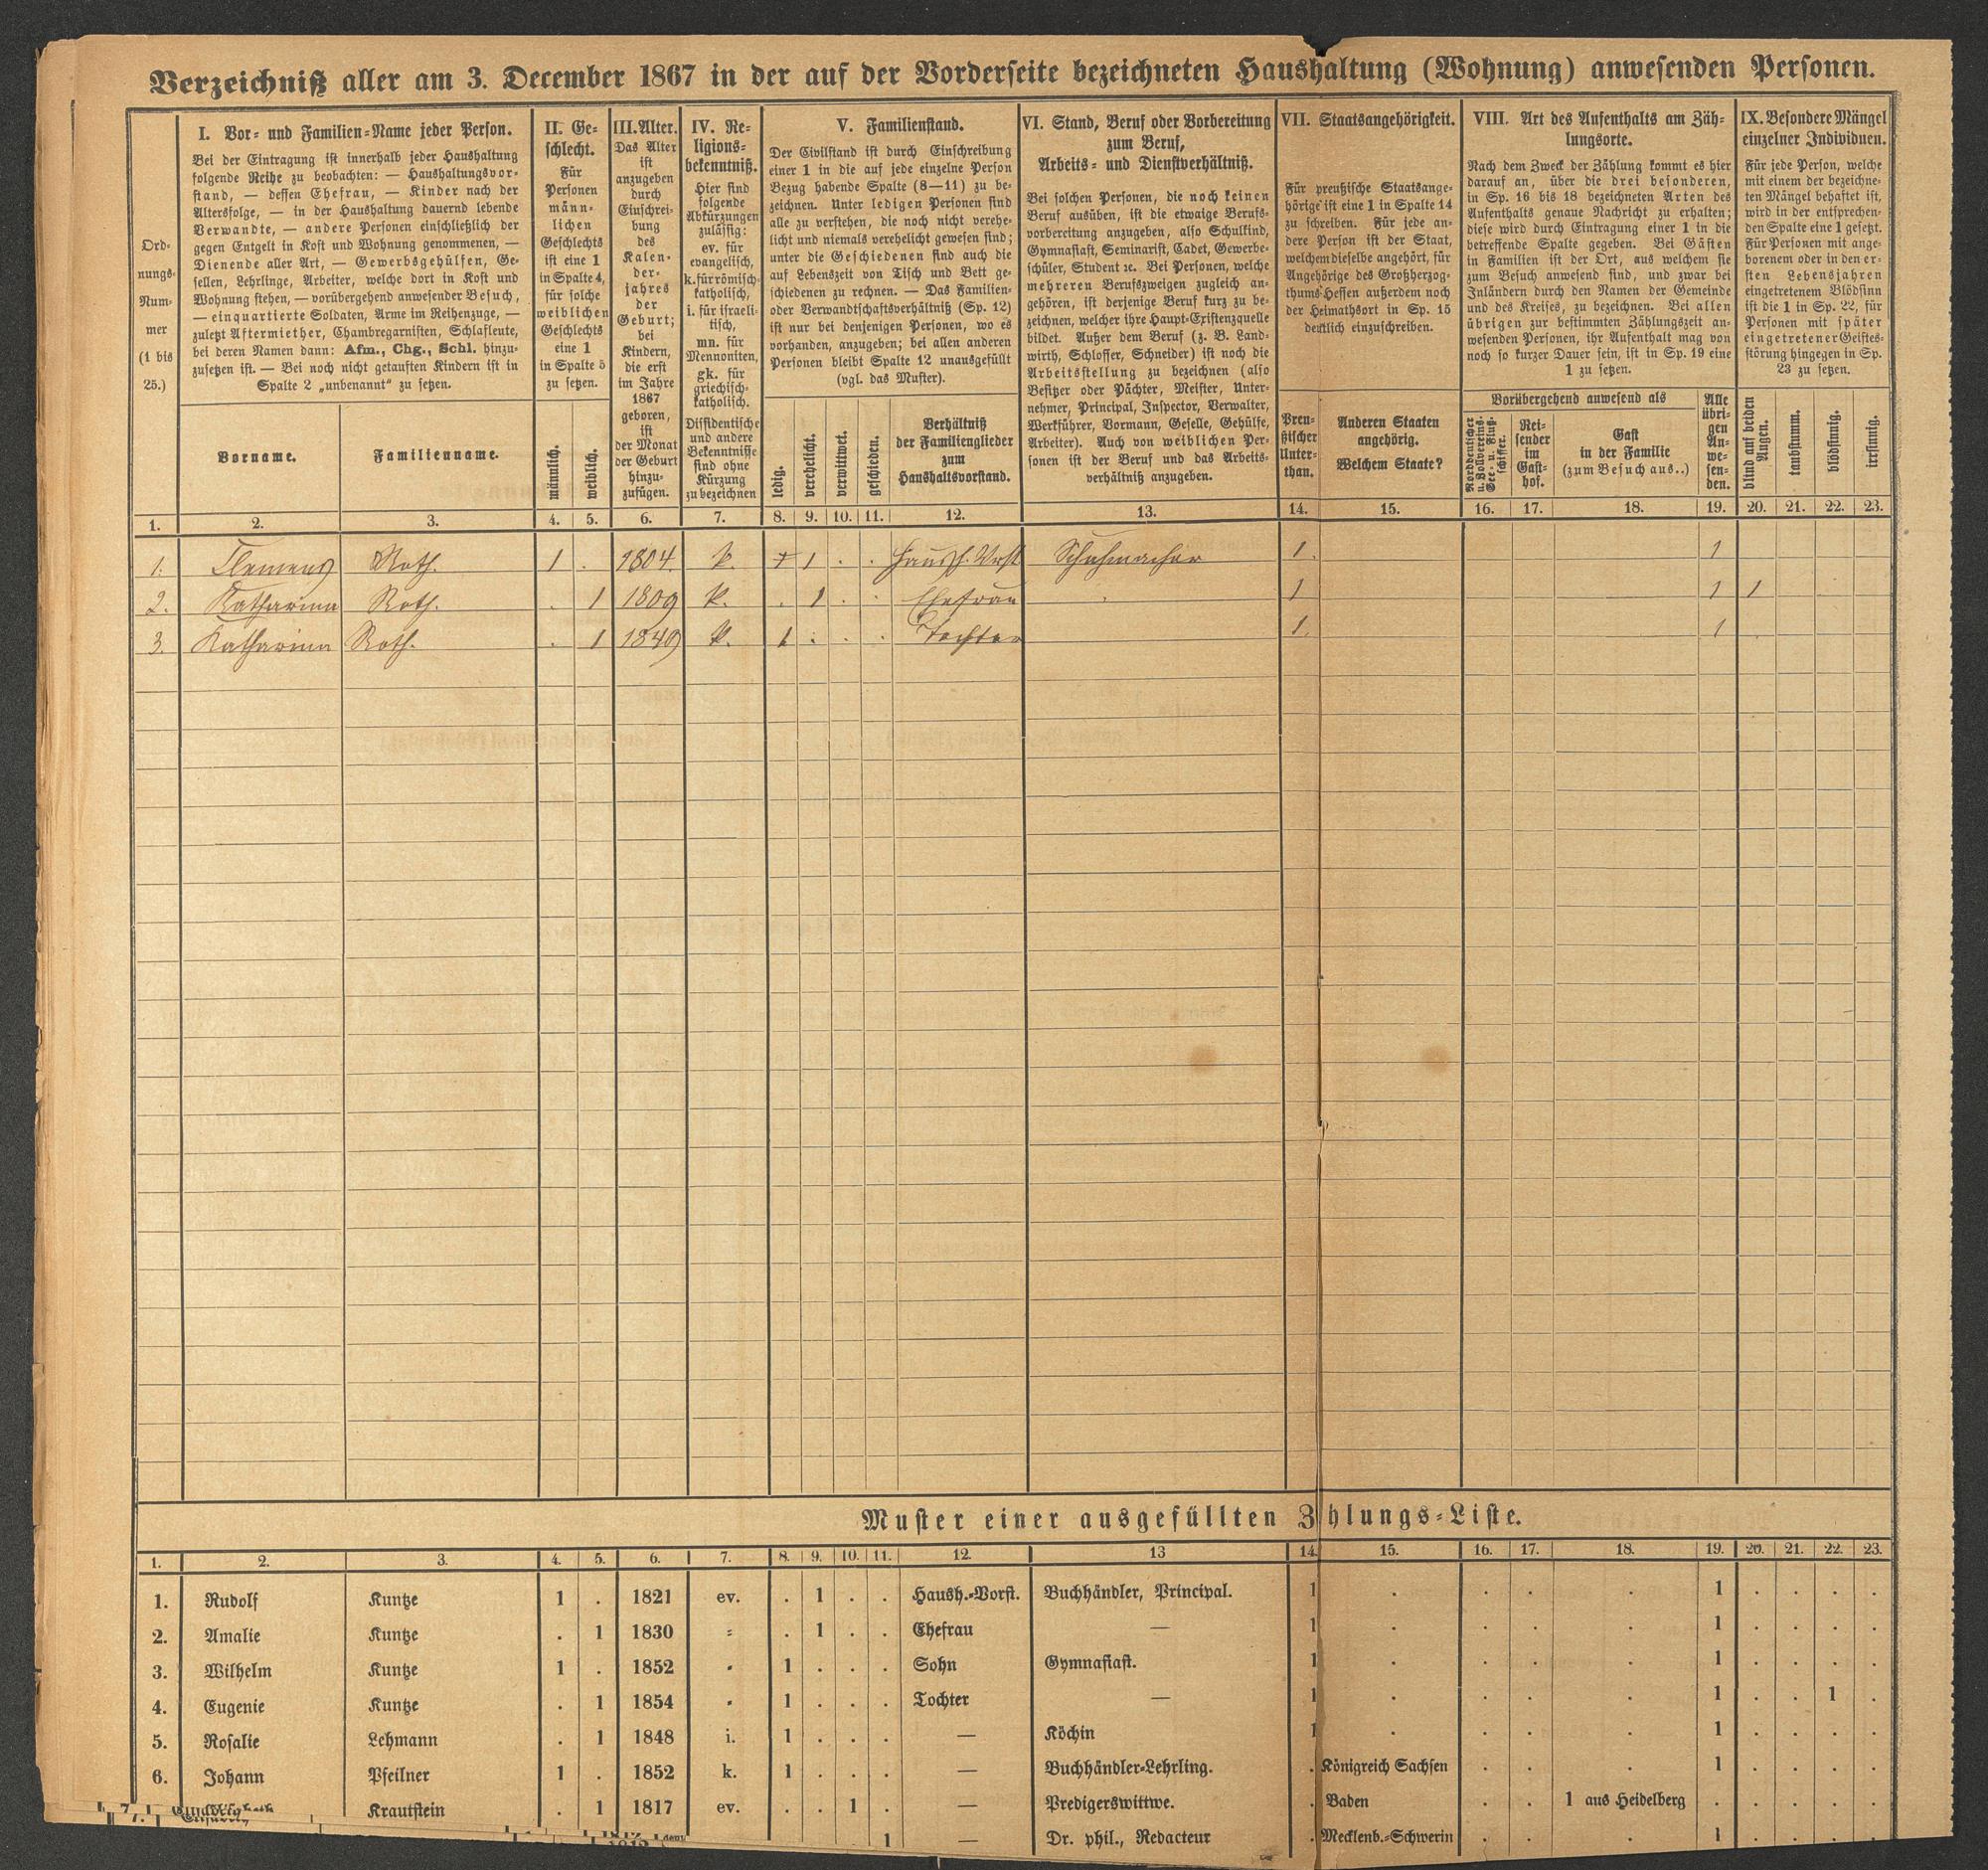 Verzeichniß aller am 3. December 1867 in der auf der Vorderseite bezeichneten Haushaltung (Wohnung) anwesenden Personen.
Ord-
nungs-
Num-
mer
(1 bis
25.)
I. Vor- und Familien-Name jeder Person.
Bei der Eintragung ist innerhalb jeder Haushaltung
folgende Reihe zu beobachten: — Haushaltungsvor-
stand, — dessen Ehefrau, — Kinder nach der
Altersfolge, — in der Haushaltung dauernd lebende
Verwandte, — andere Personen einschließlich der
gegen Entgelt in Kost und Wohnung genommenen, —
Dienende aller Art, — Gewerbsgehülfen, Ge-
sellen, Lehrlinge, Arbeiter, welche dort in Kost und
Wohnung stehen, — vorübergehend anwesender Besuch,
— einquartierte Soldaten, Arme im Reihenzuge, —
zuletzt Aftermiether, Chambregarnisten, Schlafleute,
bei deren Namen dann: Afm., Chg., Schl. hinzu-
zusetzen ist. — Bei noch nicht getauften Kindern ist in
Spalte 2 „unbenannt“ zu setzen.
Vorname.
Familienname.
II. Ge-
schlecht.
Für
Personen
männ-
lichen
Geschlechts
ist eine 1
in Spalte 4,
für solche
weiblichen
Geschlechts
eine 1
in Spalte 5
zu setzen.
männlich.
weiblich.
III. Alter.
Das Alter
ist
anzugeben
durch
Einschrei-
bung
des
Kalen-
der-
jahres
der
Geburt;
bei
Kindern,
die erst
im Jahre
1867
geboren,
ist
der Monat
der Geburt
hinzu-
zufügen.
IV. Re-
ligions-
bekenntniß.
Hier sind
folgende
Abkürzungen
zulässig:
ev. für
evangelisch,
k. für römisch-
katholisch,
i. für israeli-
tisch,
mn. für
Mennoniten,
gk. für
griechisch-
katholisch.
Dissidentische
und andere
Bekenntnisse
sind ohne
Kürzung
zu bezeichnen
V. Familienstand.
Der Civilstand ist durch Einschreibung
einer 1 in die auf jede einzelne Person
Bezug habende Spalte (8—11) zu be-
zeichnen. Unter ledigen Personen sind
alle zu verstehen, die noch nicht verehe-
licht und niemals verehelicht gewesen sind;
unter die Geschiedenen sind auch die
auf Lebenszeit von Tisch und Bett ge-
schiedenen zu rechnen. — Das Familien-
oder Verwandtschaftsverhältniß (Sp. 12)
ist nur bei denjenigen Personen, wo es
vorhanden, anzugeben; bei allen anderen
Personen bleibt Spalte 12 unausgefüllt
(vgl. das Muster).
ledig.
verehelicht.
verwittwet.
geschieden.
Verhältniß
der Familienglieder
zum
Haushaltsvorstand.
VI. Stand, Beruf oder Vorbereitung
zum Beruf,
Arbeits- und Dienstverhältniß.
Bei solchen Personen, die noch keinen
Beruf ausüben, ist die etwaige Berufs-
vorbereitung anzugeben, also Schulkind,
Gymnasiast, Seminarist, Cadet, Gewerbe-
schüler, Student ꝛc. Bei Personen, welche
mehreren Berufszweigen zugleich an-
gehören, ist derjenige Beruf kurz zu be-
zeichnen, welcher ihre Haupt-Existenzquelle
bildet. Außer dem Beruf (z. B. Land-
wirth, Schlosser, Schneider) ist noch die
Arbeitsstellung zu bezeichnen (also
Besitzer oder Pächter, Meister, Unter-
nehmer, Principal, Inspector, Verwalter,
Werkführer, Vormann, Geselle, Gehülfe,
Arbeiter). Auch von weiblichen Per-
sonen ist der Beruf und das Arbeits-
verhältniß anzugeben.
VII. Staatsangehörigkeit.
Für preußische Staatsange-
hörige ist eine 1 in Spalte 14
zu schreiben. Für jede an-
dere Person ist der Staat,
welchem dieselbe angehört, für
Angehörige des Großherzog-
thums Hessen außerdem noch
der Heimathsort in Sp. 15
deutlich einzuschreiben.
Preu-
ßischer
Unter-
than.
Anderen Staaten
angehörig.
Welchem Staate?
VIII. Art des Aufenthalts am Zäh-
lungsorte.
Nach dem Zweck der Zählung kommt es hier
darauf an, über die drei besonderen,
in Sp. 16 bis 18 bezeichneten Arten des
Aufenthalts genaue Nachricht zu erhalten;
diese wird durch Eintragung einer 1 in die
betreffende Spalte gegeben. Bei Gästen
in Familien ist der Ort, aus welchem sie
zum Besuch anwesend sind, und zwar bei
Inländern durch den Namen der Gemeinde
und des Kreises, zu bezeichnen. Bei allen
übrigen zur bestimmten Zählungszeit an-
wesenden Personen, ihr Aufenthalt mag von
noch so kurzer Dauer sein, ist in Sp. 19 eine
1 zu setzen.
Vorübergehend anwesend als
Norddeutscher
u. Zollvereins-
See- u. Fluß-
schiffer.
Rei-
sender
im
Gast-
hof.
Gast
in der Familie
(zum Besuch aus..)
Alle
übri-
gen
An-
we-
sen-
den.
IX. Besondere Mängel
einzelner Individuen.
Für jede Person, welche
mit einem der bezeichne-
ten Mängel behaftet ist,
wird in der entsprechen-
den Spalte eine 1 gesetzt.
Für Personen mit ange-
borenem oder in den er-
sten Lebensjahren
eingetretenem Blödsinn
ist die 1 in Sp. 22, für
Personen mit später
eingetretener Geistes-
störung hingegen in Sp.
23 zu setzen.
blind auf beiden
Augen.
taubstumm.
blödsinnig.
irrsinnig.
1. 2. 3. 4. 5. 6. 7. 8. 9. 10. 11. 12. 13. 14. 15. 16. 17. 18. 19. 20. 21. 22. 23.
1. Clemens Roth. 1 . 1804. k. 1 . . Haush. Vrst Schuhmacher 1. 1
2. Katharina Roth. . 1 1809 k. . 1 . . Ehefrau 1 1 1
3. Katharina Roth. . 1 1849 k. 1 . . . Tochter 1. 1
Muster einer ausgefüllten Zählungs-Liste.
1. 2. 3. 4. 5. 6. 7. 8. 9. 10. 11. 12. 13 14. 15. 16. 17. 18. 19. 20. 21. 22. 23.
1. Rudolf Kuntze 1 . 1821 ev. . 1 . . Haush.-Vorst. Buchhändler, Principal. 1 . . . . 1 . . . .
2. Amalie Kuntze . 1 1830 „ . 1 . . Ehefrau — 1 . . . . 1 . . . .
3. Wilhelm Kuntze 1 . 1852 „ 1 . . . Sohn Gymnasiast. 1 . . . . 1 . . . .
4. Eugenie Kuntze . 1 1854 „ 1 . . . Tochter — 1 . . . . 1 . . 1 .
5. Rosalie Lehmann . 1 1848 i. 1 . . . — Köchin 1 . . . . 1 . . . .
6. Johann Pfeilner 1 . 1852 k. 1 . . . — Buchhändler-Lehrling. . Königreich Sachsen . . . 1 . . . .
7. Krautstein . 1 1817 ev. . . 1 . — Predigerswittwe. . Baden . . 1 aus Heidelberg . . . . .
1 — Dr. phil., Redacteur . Mecklenb.-Schwerin . . . 1 . . . .